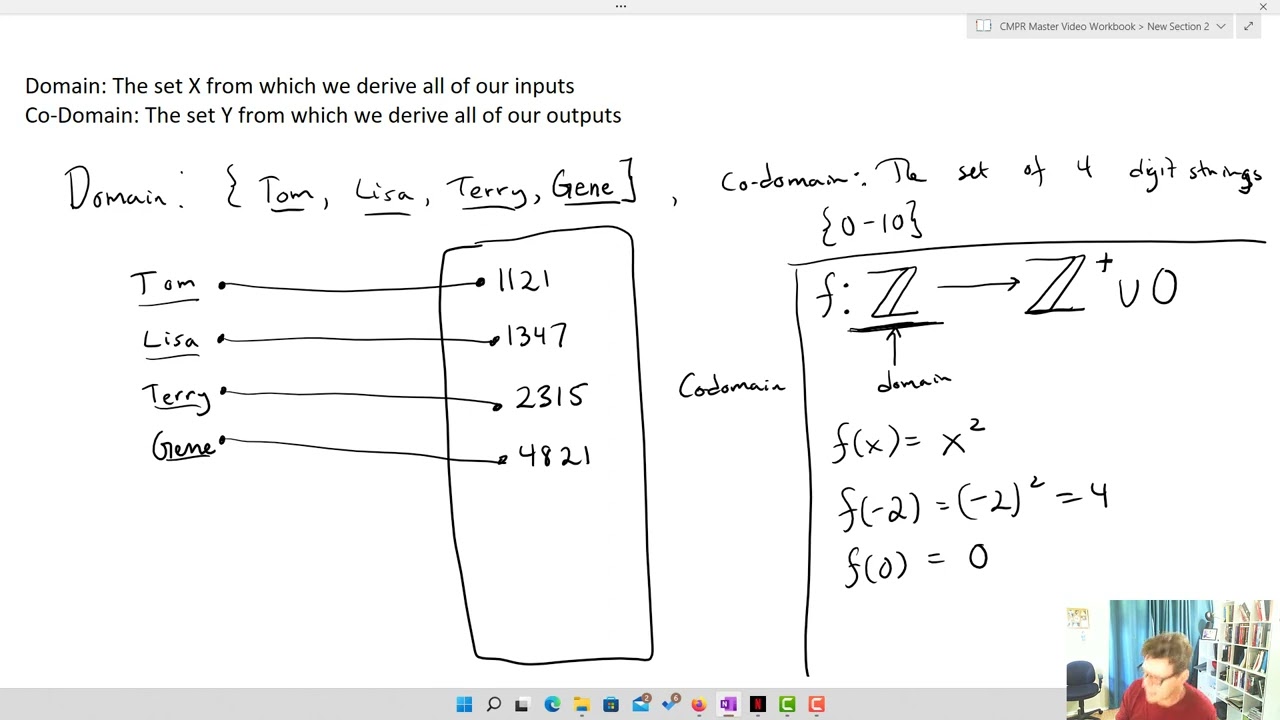 CMPR Master Video Workbook > New Section 2
Domain: The set X from which we derive all of our inputs
Co-Domain: The set Y from which we derive all of our outputs
Domain: { Tom, Lisa, Terry, Gene } , Co-domain: The set of 4 digit strings
{0-10}
Tom 1121
Lisa 1347
Terry 2315
Gene 4821
Codomain
f: ℤ → ℤ⁺ ∪ 0
domain
f(x) = x²
f(-2) = (-2)² = 4
f(0) = 0